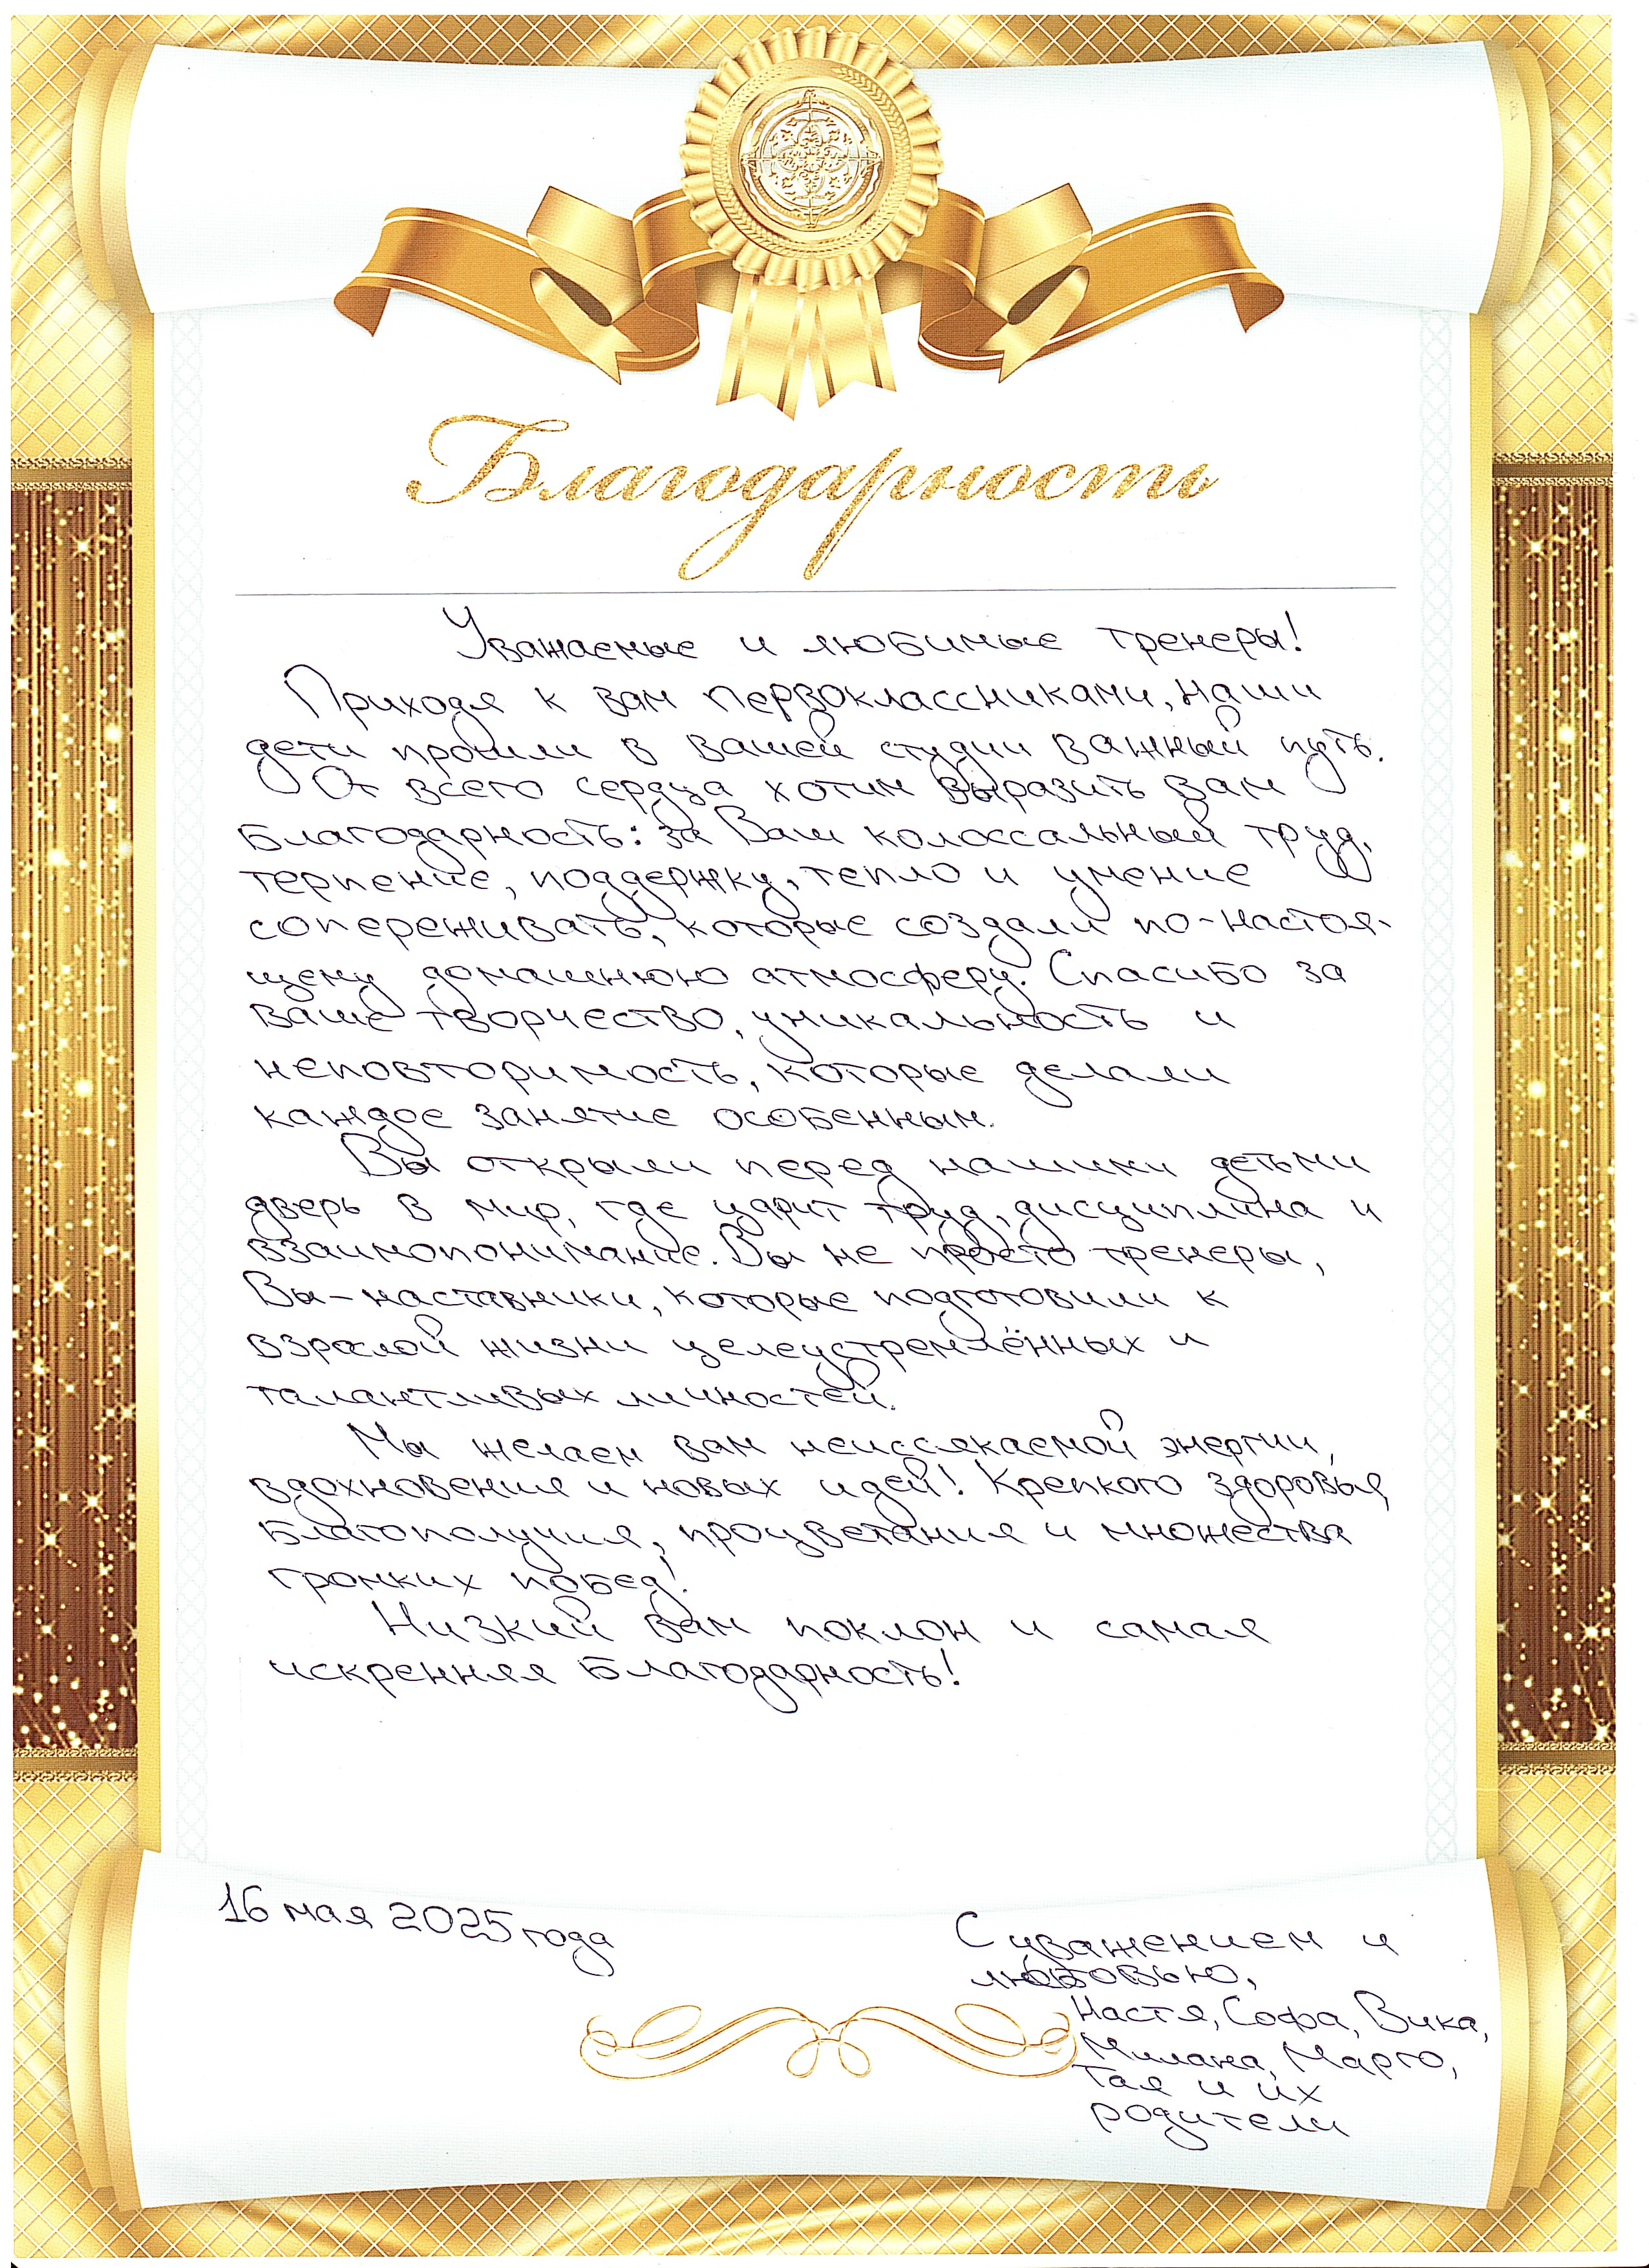 Благодарность
Уважаемые и любимые тренеры!
Приходя к вам первоклассниками, наши
дети прошли в вашей студии важный путь.
От всего сердца хотим выразить вам
благодарность: за Ваш колоссальный труд,
терпение, поддержку, тепло и умение
сопереживать, которые создали по-настоя-
щему домашнюю атмосферу. Спасибо за
ваше творчество, уникальность и
неповторимость, которые делали
каждое занятие особенным.
Вы открыли перед нашими детьми
дверь в мир, где царит труд, дисциплина и
взаимопонимание. Вы не просто тренеры,
Вы - наставники, которые подготовили к
взрослой жизни целеустремлённых и
талантливых личностей.
Мы желаем вам неиссякаемой энергии,
вдохновения и новых идей! Крепкого здоровья,
благополучия, процветания и множества
громких побед!
Низкий вам поклон и самая
искренняя благодарность!
16 мая 2025 года
С уважением и
любовью,
Настя, Софа, Вика,
Милана, Марго,
Тая и их
родители